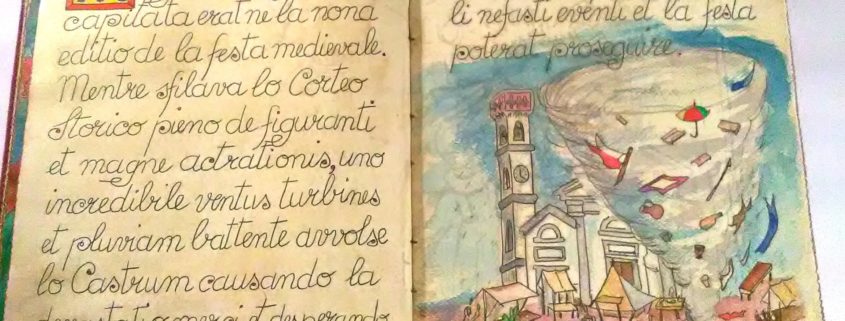 capitata erat ne la nona
editio de la festa medievale.
Mentre sfilava lo Corteo
Storico pieno de figuranti
et magne actrationis, uno
incredibile ventus turbines
et pluviam battente avvolse
lo Castrum causando la
et
li nefasti eventi et la festa
poterat proseguire.